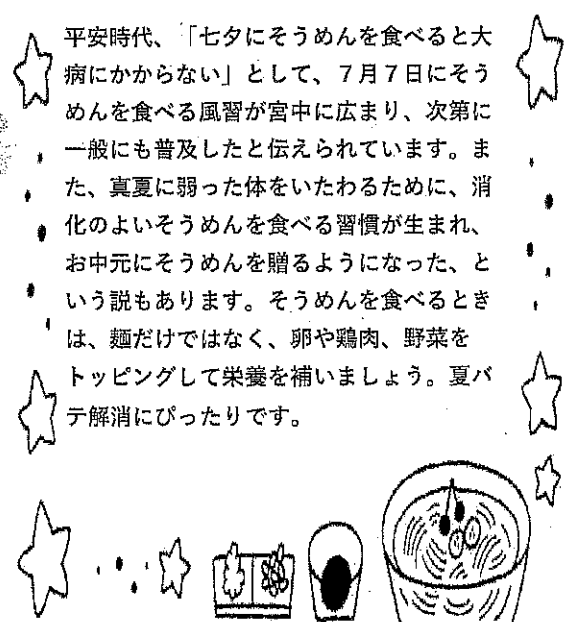 平安時代、「七夕にそうめんを食べると大
病にかからない」として、７月７日にそう
めんを食べる風習が宮中に広まり、次第に
一般にも普及したと伝えられています。ま
た、真夏に弱った体をいたわるために、消
化のよいそうめんを食べる習慣が生まれ、
お中元にそうめんを贈るようになった、と
いう説もあります。そうめんを食べるとき
は、麺だけではなく、卵や鶏肉、野菜を
トッピングして栄養を補いましょう。夏バ
テ解消にぴったりです。